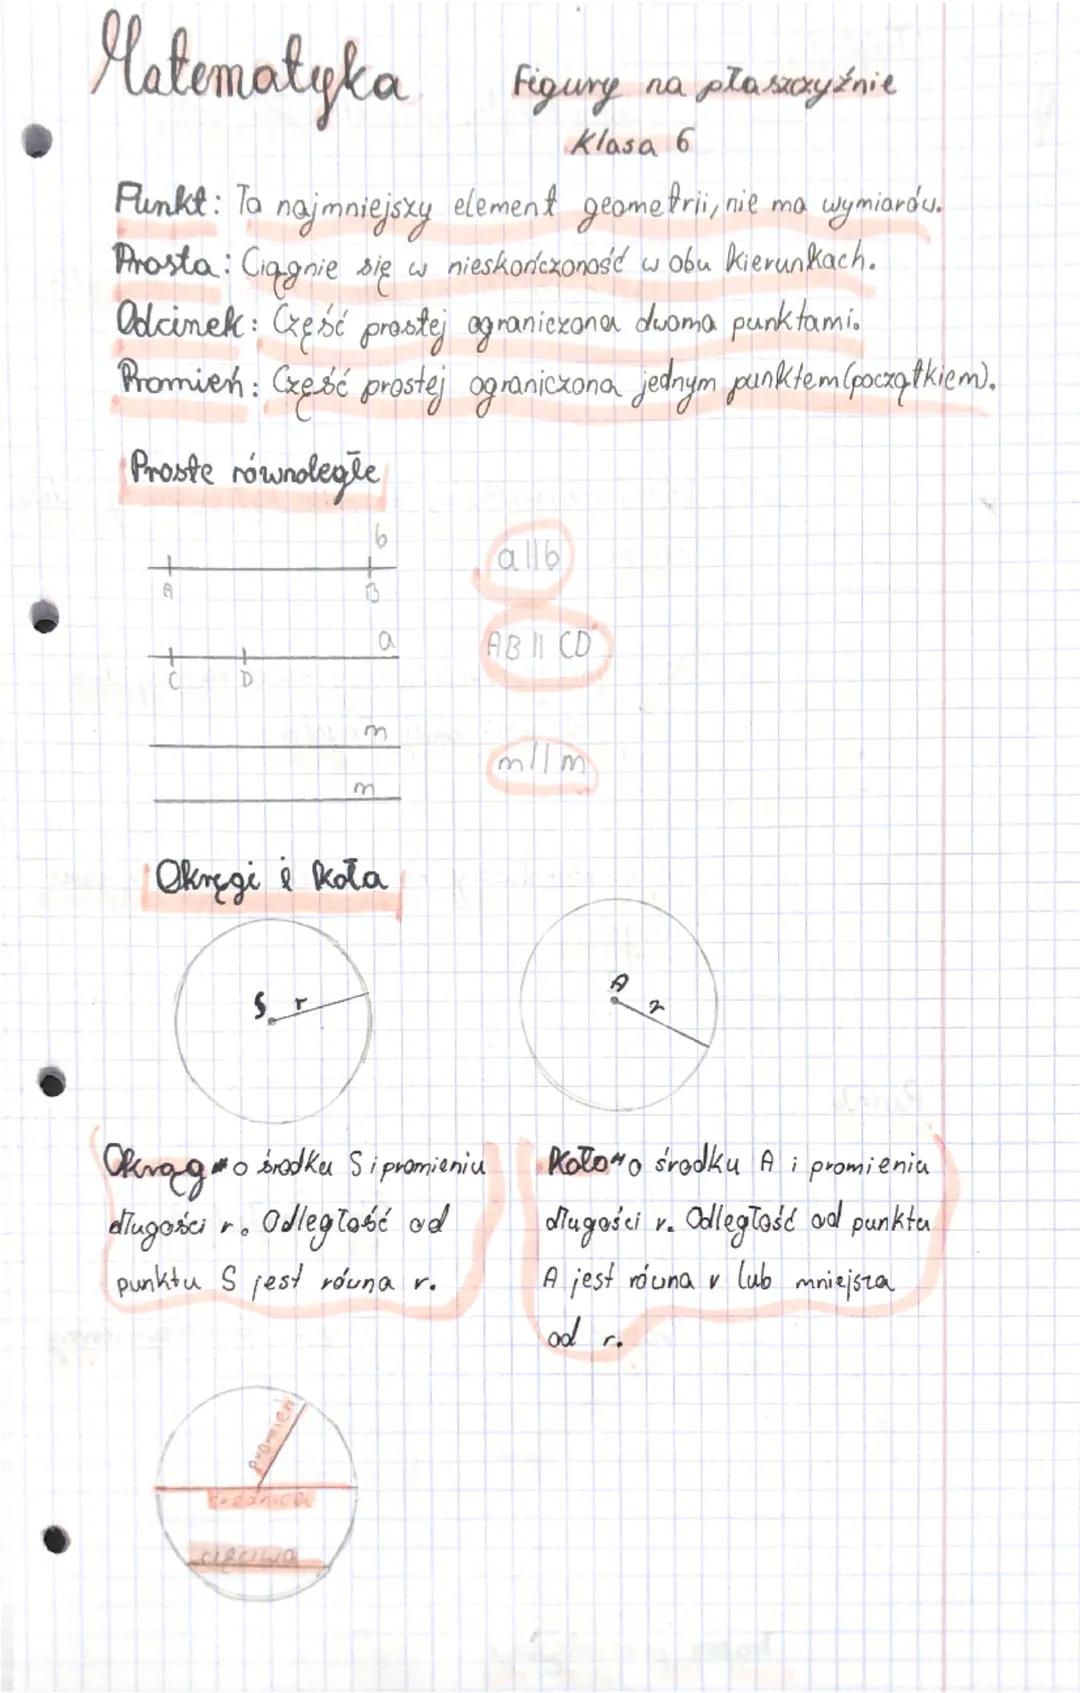 Matematyka
Figury na płaszczyźnie
Klasa 6
Punkt: To najmniejszy element geometrii, nie ma wymiarów.
Prosta: Ciągnie się w nieskończoność w obu kierunkach.
Odcinek: Część prostej ograniczona dwoma punktami.
Promień: Część prostej ograniczona jednym punktem (początkiem).
Proste równoległe
b
A B
a||b
a
C D
AB || CD
m
m
m||m
Okręgi i koła
S r
A r
Okrąg - o środku S i promieniu
długości r. Odległość od
punktu S jest równa r.
Koło - o środku A i promieniu
długości r. Odległość od punktu
A jest równa r lub mniejsza
od r.
promień
średnica
cięciwa